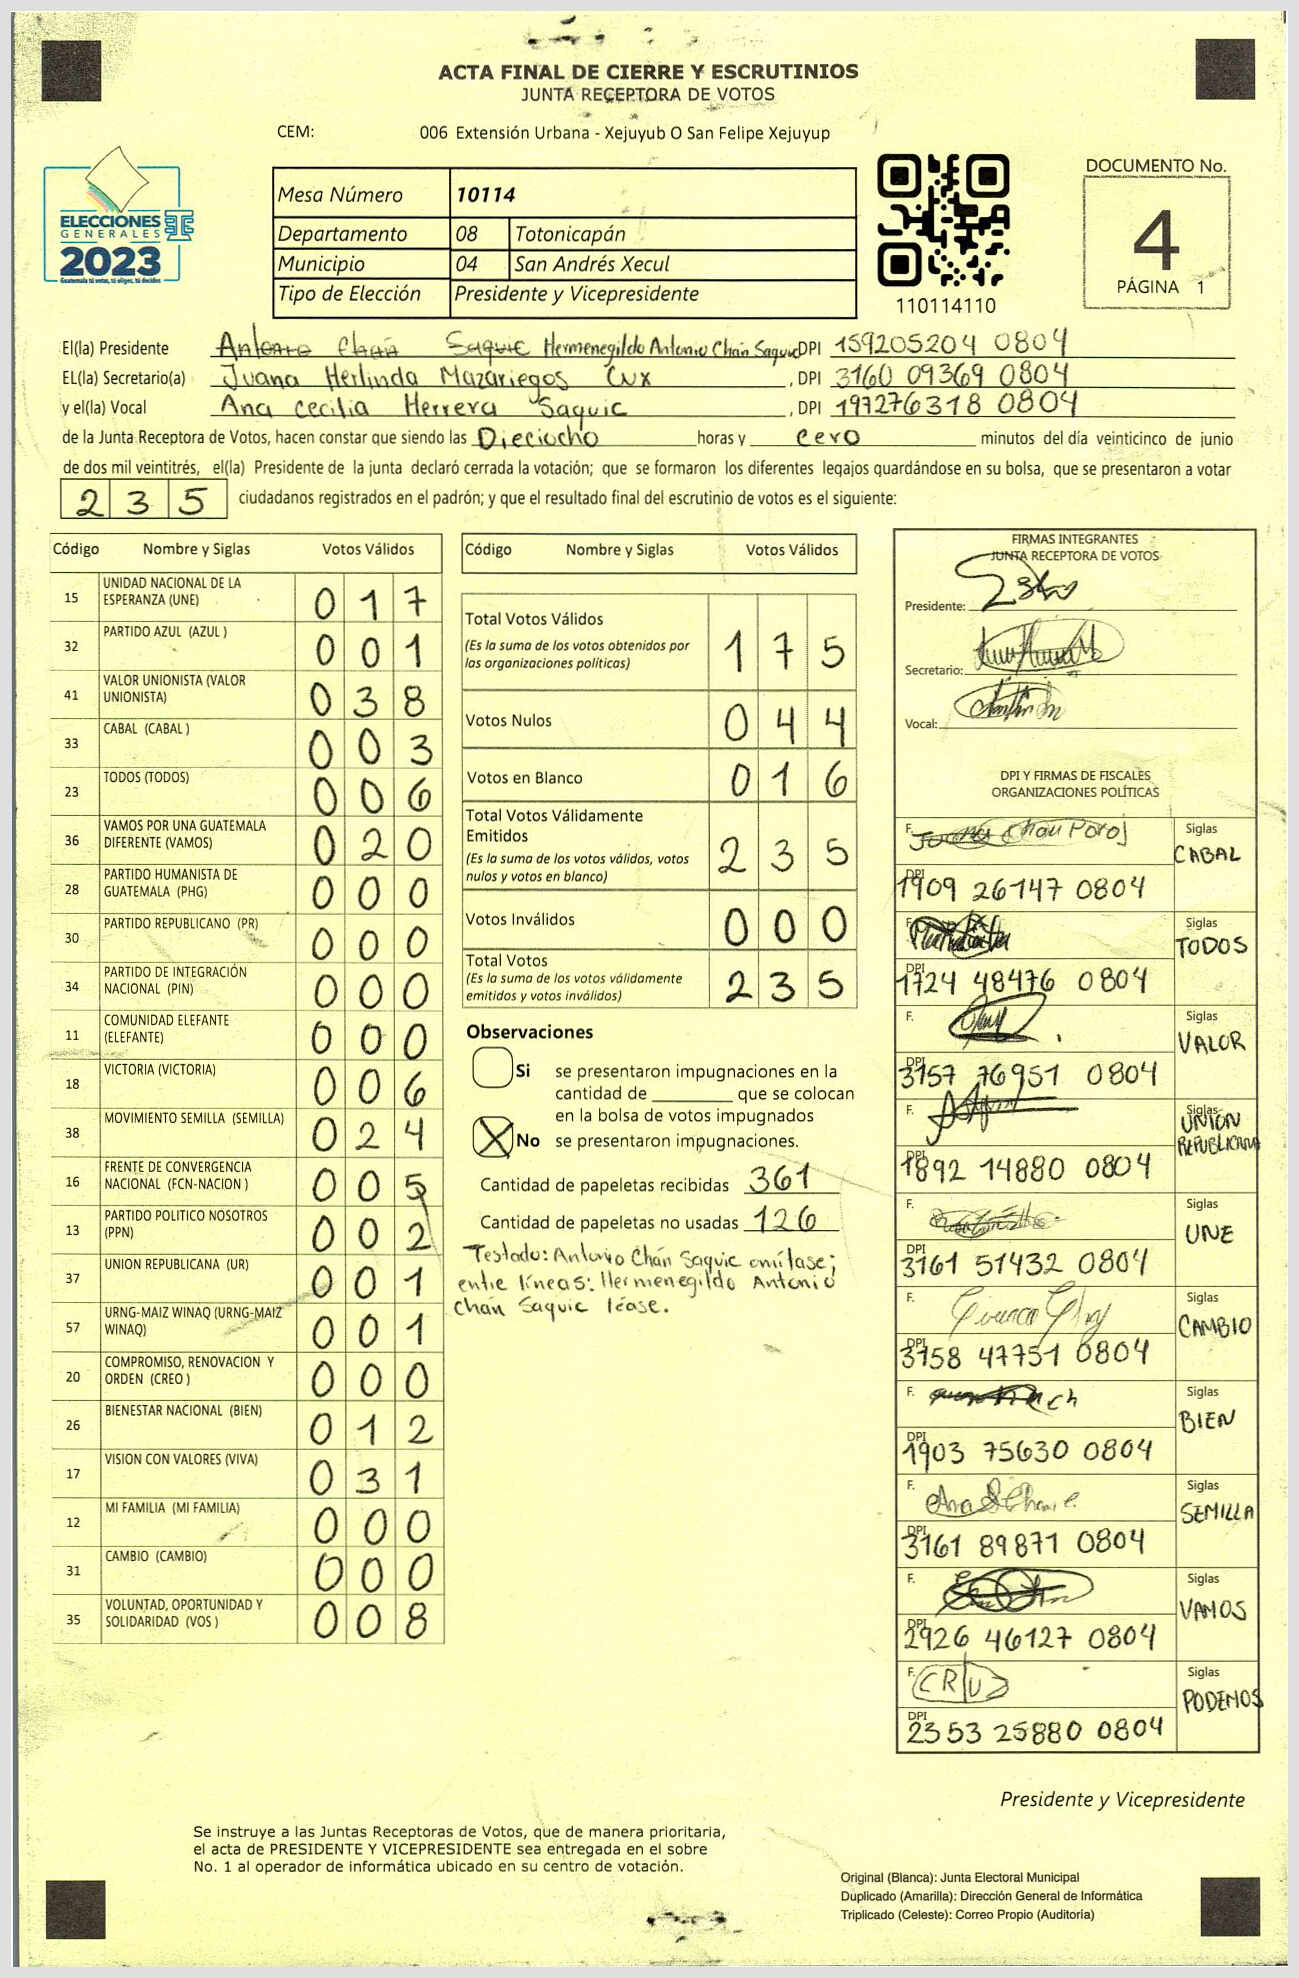 ACTA FINAL DE CIERRE Y ESCRUTINIOS
JUNTA RECEPTORA DE VOTOS
CEM: 006 Extensión Urbana - Xejuyub O San Felipe Xejuyup
ELECCIONES
GENERALES
2023
Guatemala tú votas, tú eliges, tú decides
Mesa Número 10114
Departamento 08 Totonicapán
Municipio 04 San Andrés Xecul
Tipo de Elección Presidente y Vicepresidente
110114110
DOCUMENTO No.
4
PÁGINA 1
El(la) Presidente Antonio Chán Saquic Hermenegildo Antonio Chán Saquic DPI 159205204 0804
EL(la) Secretario(a) Juana Herlinda Mazariegos Cux , DPI 3160 09369 0804
y el(la) Vocal Ana Cecilia Herrera Saquic , DPI 197276318 0804
de la Junta Receptora de Votos, hacen constar que siendo las Dieciocho horas y cero minutos del día veinticinco de junio
de dos mil veintitrés, el(la) Presidente de la junta declaró cerrada la votación; que se formaron los diferentes legajos quardándose en su bolsa, que se presentaron a votar
235 ciudadanos registrados en el padrón; y que el resultado final del escrutinio de votos es el siguiente:
Código Nombre y Siglas Votos Válidos
15 UNIDAD NACIONAL DE LA
ESPERANZA (UNE) 017
32 PARTIDO AZUL (AZUL ) 001
41 VALOR UNIONISTA (VALOR
UNIONISTA) 038
33 CABAL (CABAL ) 003
23 TODOS (TODOS) 006
36 VAMOS POR UNA GUATEMALA
DIFERENTE (VAMOS) 020
28 PARTIDO HUMANISTA DE
GUATEMALA (PHG) 000
30 PARTIDO REPUBLICANO (PR) 000
34 PARTIDO DE INTEGRACIÓN
NACIONAL (PIN) 000
11 COMUNIDAD ELEFANTE
(ELEFANTE) 000
18 VICTORIA (VICTORIA) 006
38 MOVIMIENTO SEMILLA (SEMILLA) 024
16 FRENTE DE CONVERGENCIA
NACIONAL (FCN-NACION ) 005
13 PARTIDO POLITICO NOSOTROS
(PPN) 002
37 UNION REPUBLICANA (UR) 001
57 URNG-MAIZ WINAQ (URNG-MAIZ
WINAQ) 001
20 COMPROMISO, RENOVACION Y
ORDEN (CREO ) 000
26 BIENESTAR NACIONAL (BIEN) 012
17 VISION CON VALORES (VIVA) 031
12 MI FAMILIA (MI FAMILIA) 000
31 CAMBIO (CAMBIO) 000
35 VOLUNTAD, OPORTUNIDAD Y
SOLIDARIDAD (VOS ) 008
Código Nombre y Siglas Votos Válidos
Total Votos Válidos
(Es la suma de los votos obtenidos por
las organizaciones políticas) 175
Votos Nulos 044
Votos en Blanco 016
Total Votos Válidamente
Emitidos
(Es la suma de los votos válidos, votos
nulos y votos en blanco) 235
Votos Inválidos 000
Total Votos
(Es la suma de los votos válidamente
emitidos y votos inválidos) 235
Observaciones
Si se presentaron impugnaciones en la
cantidad de ________ que se colocan
en la bolsa de votos impugnados
X No se presentaron impugnaciones.
Cantidad de papeletas recibidas 361
Cantidad de papeletas no usadas 126
Testado: Antonio Chán Saquic omítase;
entre líneas: Hermenegildo Antonio
Chán Saquic léase.
FIRMAS INTEGRANTES
JUNTA RECEPTORA DE VOTOS
Presidente:
Secretario:
Vocal:
DPI Y FIRMAS DE FISCALES
ORGANIZACIONES POLÍTICAS
F. Chán Siglas
CABAL
DPI 1909 26147 0804
F. Siglas
TODOS
DPI 1724 48476 0804
F. Siglas
VALOR
DPI 3157 76951 0804
F. Siglas
UNION
REPUBLICANA
DPI 1892 14880 0804
F. Siglas
UNE
DPI 3161 51432 0804
F. Siglas
CAMBIO
DPI 3158 47751 0804
F. Siglas
BIEN
DPI 1903 75630 0804
F. Siglas
SEMILLA
DPI 3161 89871 0804
F. Siglas
VAMOS
DPI 2926 46127 0804
F. CRUZ Siglas
PODEMOS
DPI 2353 25880 0804
Presidente y Vicepresidente
Se instruye a las Juntas Receptoras de Votos, que de manera prioritaria,
el acta de PRESIDENTE Y VICEPRESIDENTE sea entregada en el sobre
No. 1 al operador de informática ubicado en su centro de votación.
Original (Blanca): Junta Electoral Municipal
Duplicado (Amarilla): Dirección General de Informática
Triplicado (Celeste): Correo Propio (Auditoría)